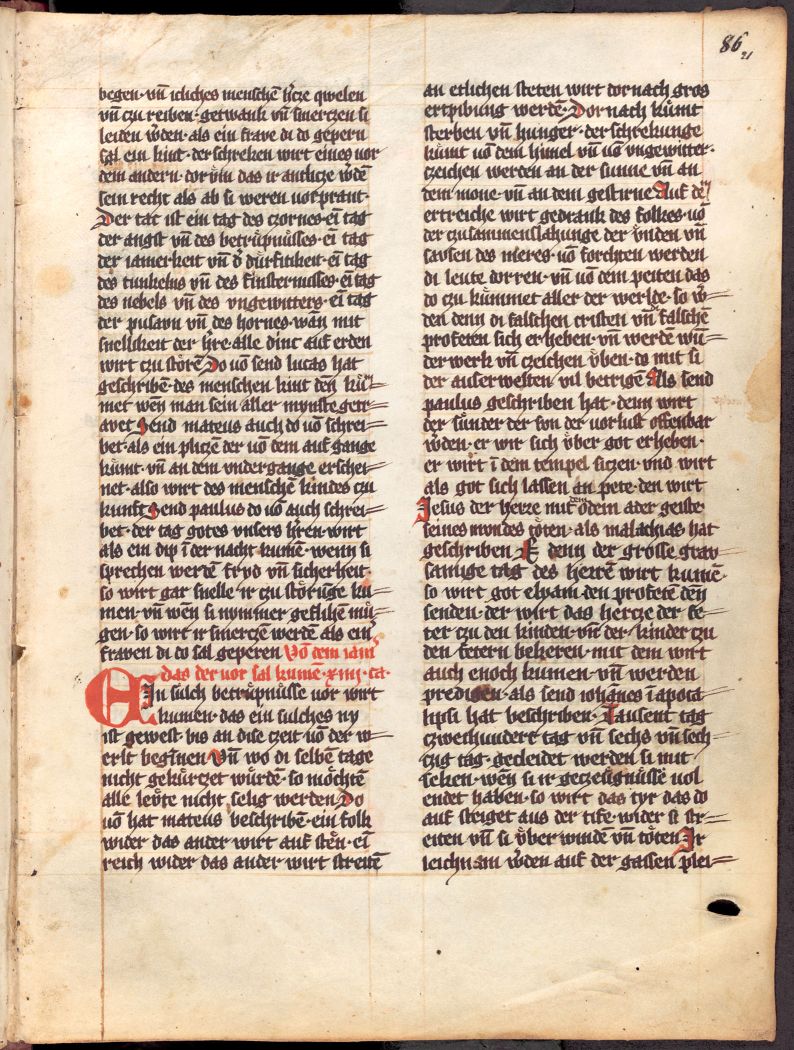 86
21
begen · vñ icliches menschē h̓cze qwelen
vñ czu reiben · getwank vñ smerczen si
leiden w̓den · als ein frawe di do gepern
sal ein kint · der schreken wirt eines vor
dem andern · dor vm das ir antlicze w̓dē
sein recht als ab si weren vorprant ·
Der tat ist ein tag des czornes · eī tag
der angst vñ des betrüpnüsses · eī tag
der iamerkeit vñ d̓ dürftikeit · eī tag
des tunkelns vñ des finsternisses · eī tag
des nebels vñ des vngewitters · eī tag
der pusavn vñ des hornes · wañ mit
snellikeit der h̓re · alle dint auf erden
wirt czu störē Do uō send lucas hat
geschribē · des menschen kint deñ kü=
met wen man sein aller mynste getr=
avet Send mateus auch do uō schrei=
bet · als ein pliczē der uō dem auf gange
kümt · vñ an dem vndergange erschei=
net · also wirt des menschē kindes czu
kunft Send paulus do uō auch schrei=
bet · der tag gotes vnsers h̓ren · wirt
als ein dip ī der nacht kumē · wenn si
sprechen werdē fryd vñ sicherheit ·
so wirt gar snelle ir czu störūge ku=
men · vñ wen si nymmer geflihē mü=
gen · so wirt ir smerczē werdē als eīr
frawen di do sal geperen Vō dem iam̓
das der vor sal kumē · xiiij · ca ·
EIn sulch betrüpnüsse vor wirt
kumen · das ein sulches ny
ist gewest bis an dise czeit uō der w=
erlt begīnen Vñ wo di selbē tage
nicht gekürczet würdē · so möchtē
alle levte nicht selig werden Do
uō hat mateus beschribē · ein folk
wider das ander wirt auf stēn · eī
reich wider das ander wirt streitē
an etlichen steten wirt dor nach gros
ertpibung werdē · Dor nach kümt
sterben vñ hunger · der schrekunge
kümt uō dem himel vñ uō vngewitter ·
czeichen werden an der sunne vñ an
dem mone · vñ an dem gestirne Auf dē
ertreiche wirt gedrank des folkes · uō
der czusammenslahunge der vnden vñ
savsen des meres · uō forchten werden
di leute dorren · vñ uō dem peiten das
do czu kümmet aller der werlde · so w̓=
den denn di falschen cristen vñ falschē
profeten sich erheben · vñ werdē wū=
derwerk vñ czeichen üben · do mit si
der auserwelten vil betrigē Als send
paulus geschriben hat · denn wirt
der sünder der son der vorlust offenbar
w̓den · er wir sich über got erheben ·
er wirt ī dem tempel siczen · vnd wirt
als got sich lassen an pete · den wirt
Jesus der herre mit dem odem ader geiste
seines mondes töten · als malachias hat
geschriben E denn der grosse grav=
samige tag des herrē wirt kumē ·
so wirt got elyam den profetē deñ
senden · der wirt das hercze der fe=
ter czu den kinden · vñ der kinder czu
den fetern bekeren · mit dem wirt
auch enoch kumen · vñ werden
predigen · als send iohānes ī apoca=
lipsi hat beschriben · Tausent tag
czweihundert tag vñ sechs vñ sech=
czig tag · gecleidet werden si mit
seken · wen si ir geczeügnüsse vol
endet haben · so wirt das tyr das do
auf steiget aus der tife · wider si str=
eiten vñ si über windē vñ töten Jr
leichnam w̓den auf der gassen plei=